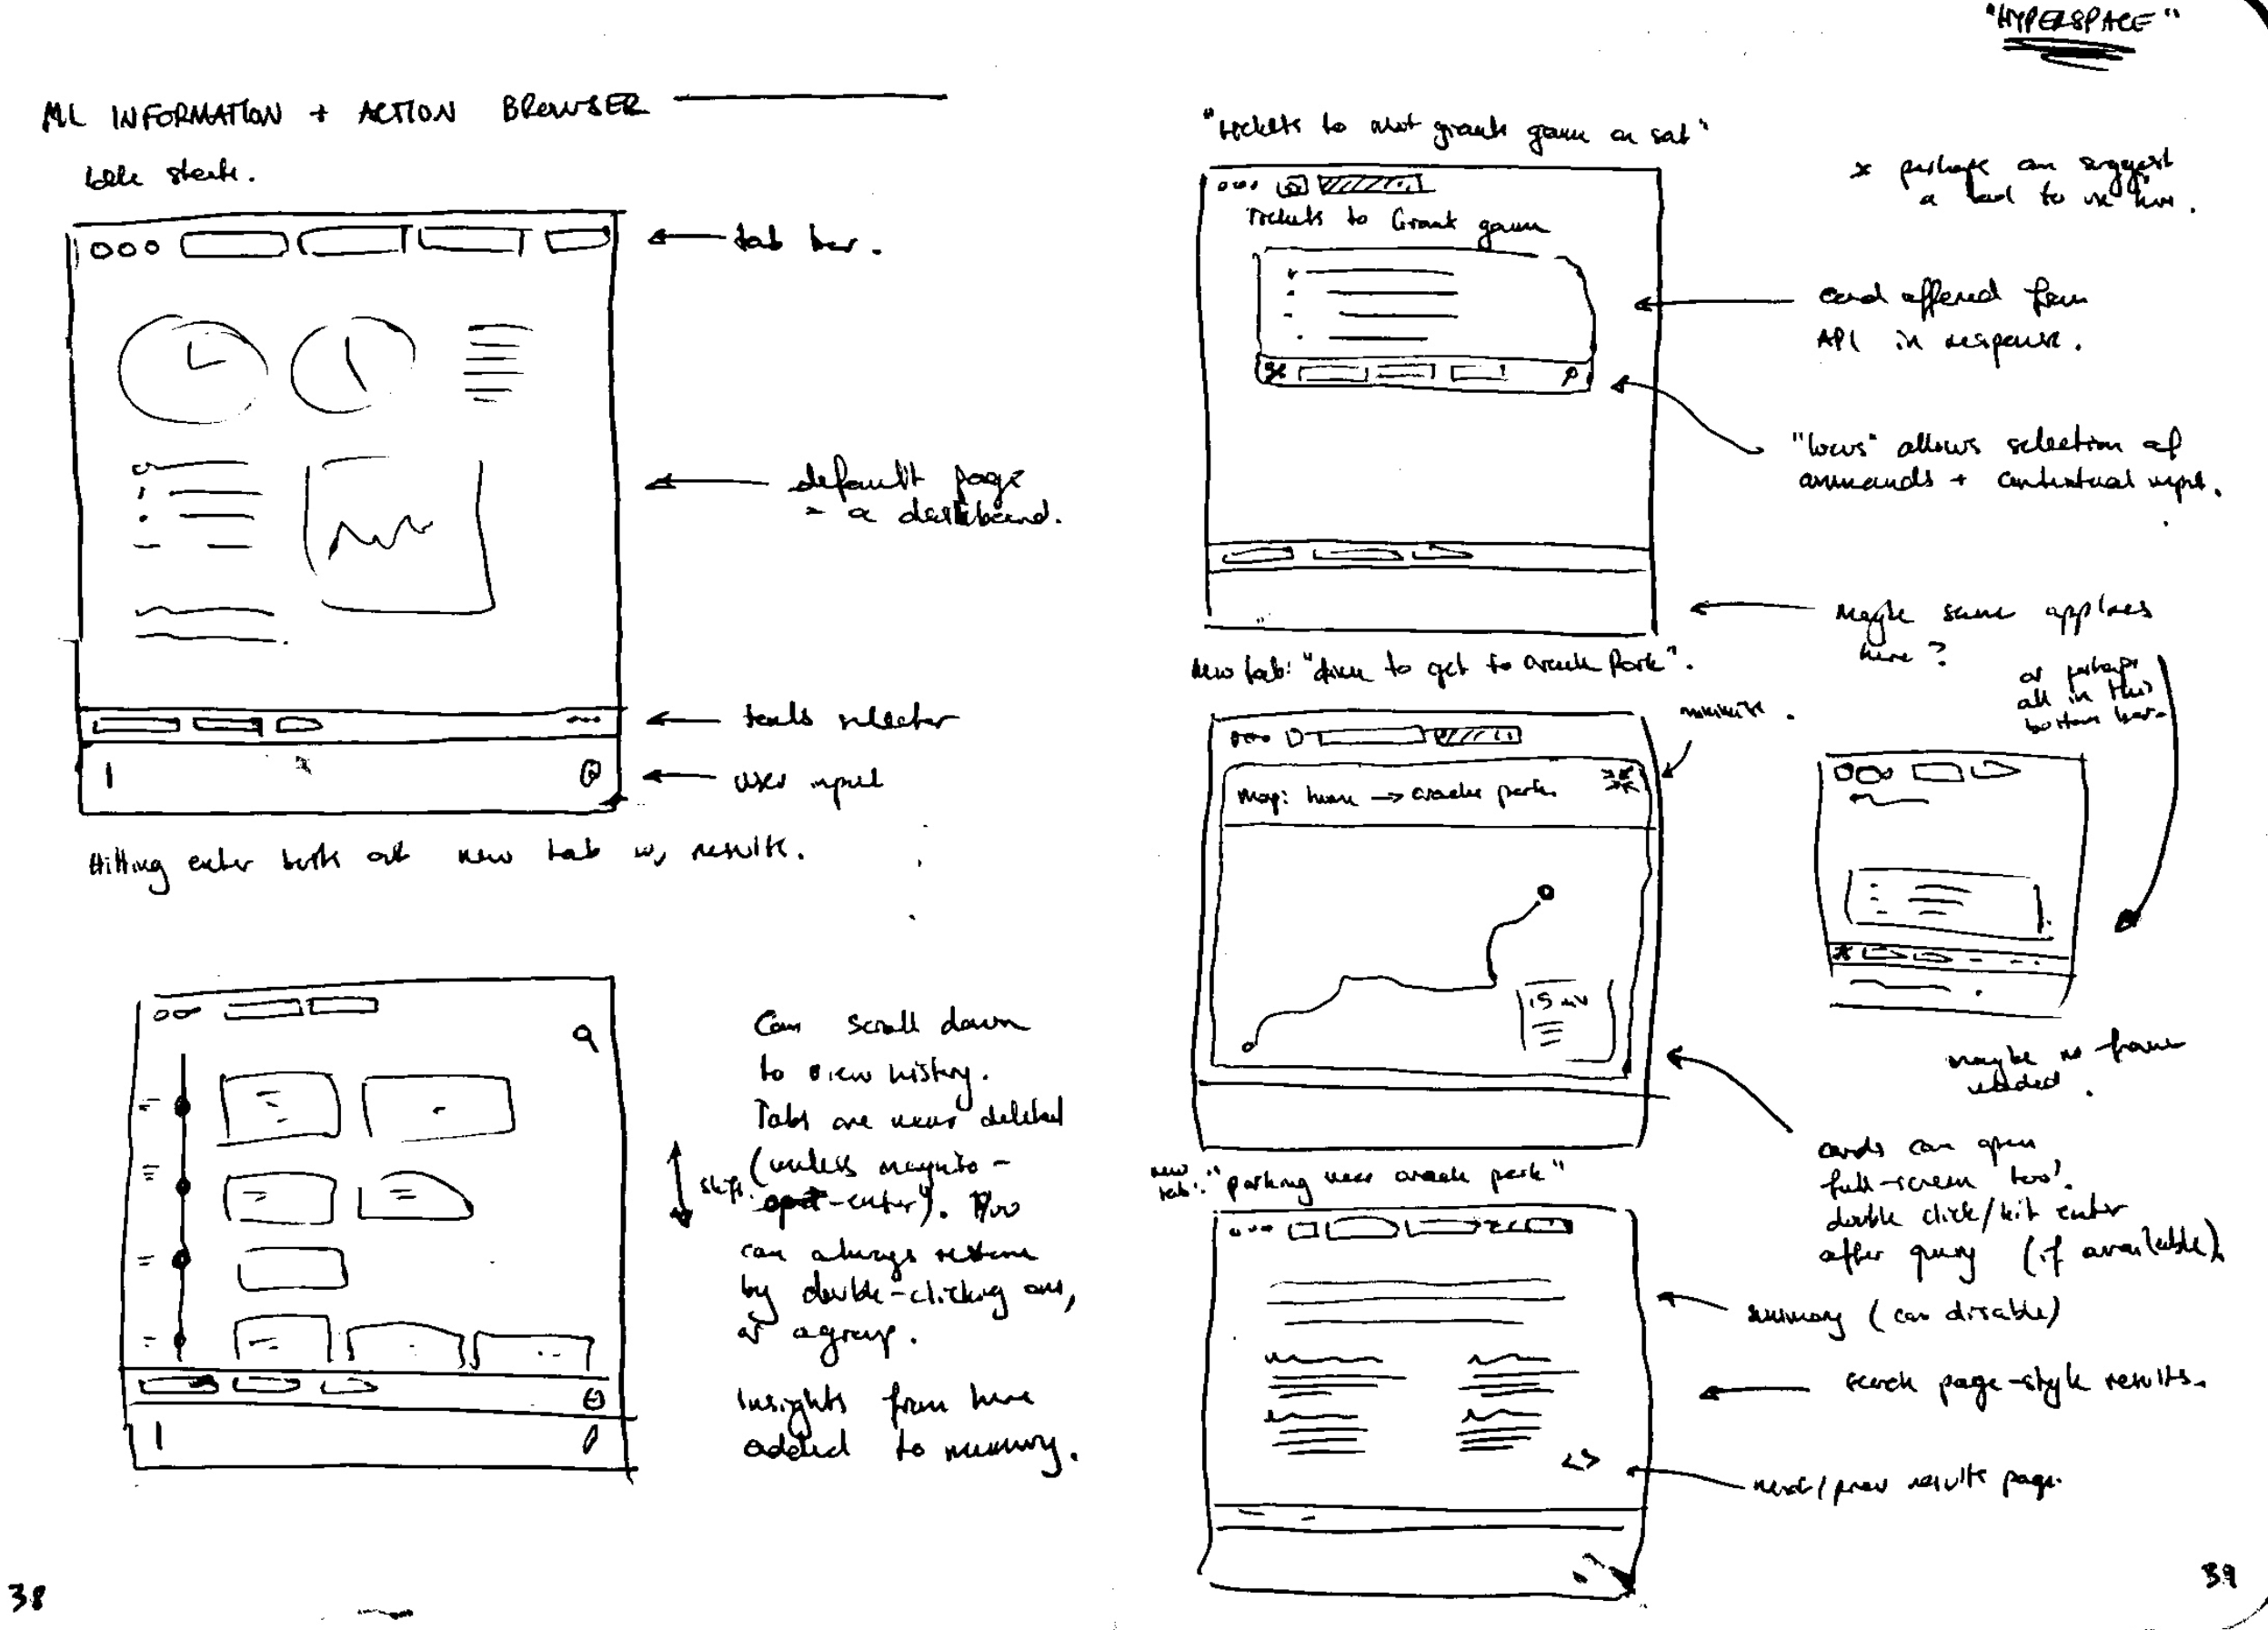 "HYPERSPACE"
ML INFORMATION + ACTION BROWSER
Idle state.
tab bar.
default page
= a dashboard.
tools selector
user input
Hitting enter out new tab w/ results.
Can scroll down
to view history.
Tabs are never deleted
(unless incognito -
-enter). You
can always restore
by double-clicking one,
or a group.
Insights from here
added to memory.
38
"tickets to next giants game on sat"
Tickets to Giants game
* perhaps can suggest
a tool to use here.
card offered from
API in response.
"locus" allows selection of
commands + contextual input.
Maybe same applies
here?
or perhaps
all in this
bottom bar.
new tab: "time to get to oracle park".
minimize.
Map: home → oracle park.
15 min
maybe no frame
needed.
cards can open
full-screen too.
double click/hit enter
after query (if available).
new
tab: "parking near oracle park"
summary (can disable)
search page-style results.
< >
next/prev results page.
39